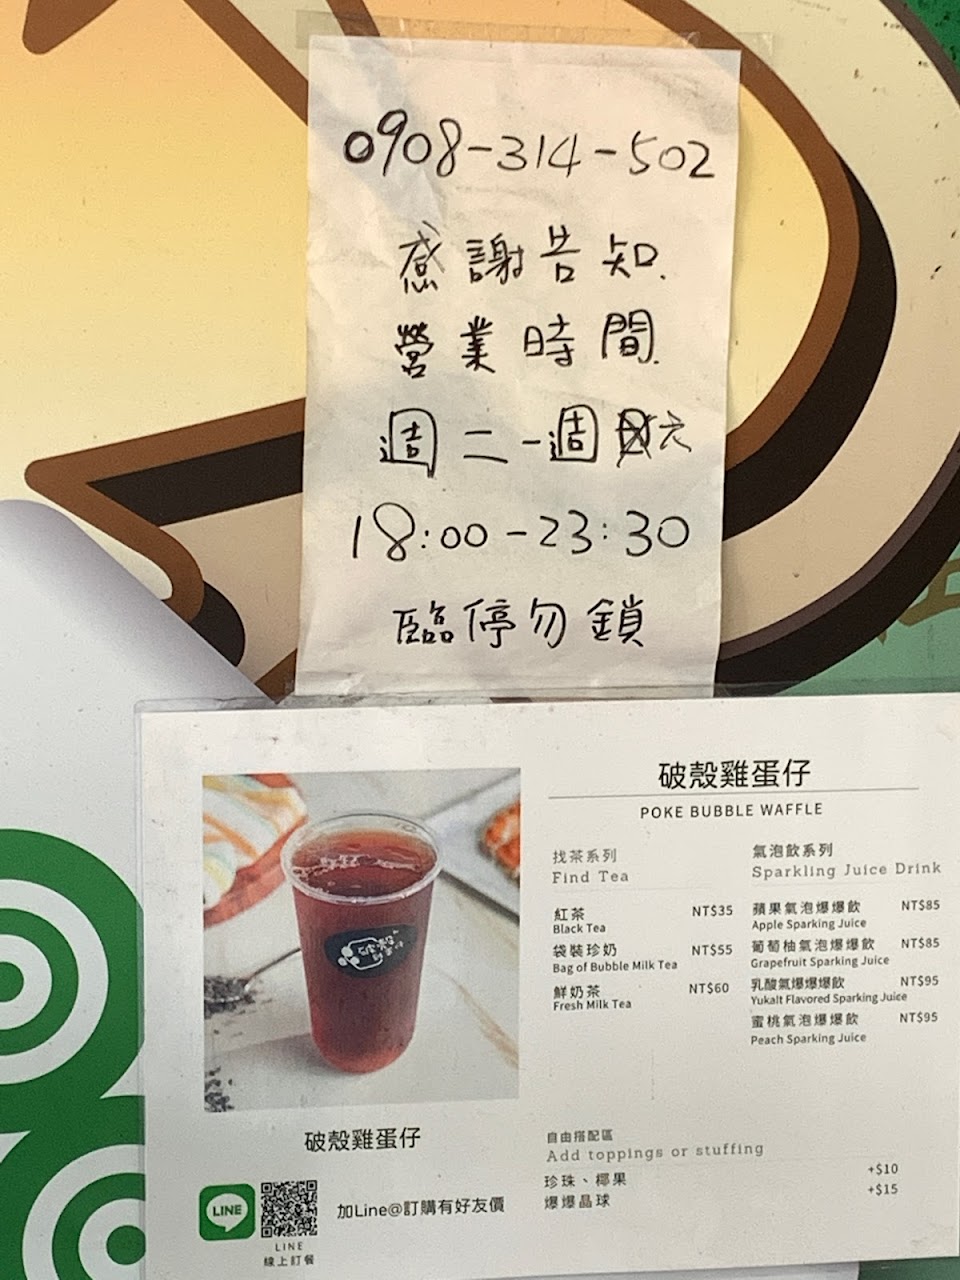 0908-314-502
感謝告知
營業時間
週二-週六
18:00-23:30
臨停勿鎖
破殼雞蛋仔
POKE BUBBLE WAFFLE
找茶系列
Find Tea
紅茶 NT$35
Black Tea
袋裝珍奶 NT$55
Bag of Bubble Milk Tea
鮮奶茶 NT$60
Fresh Milk Tea
氣泡飲系列
Sparkling Juice Drink
蘋果氣泡爆爆飲 NT$85
Apple Sparking Juice
葡萄柚氣泡爆爆飲 NT$85
Grapefruit Sparking Juice
乳酸氣爆爆爆飲 NT$95
Yukalt Flavored Sparking Juice
蜜桃氣泡爆爆飲 NT$95
Peach Sparking Juice
自由搭配區
Add toppings or stuffing
珍珠、椰果 +$10
爆爆晶球 +$15
破殼雞蛋仔
LINE
加Line@訂購有好友價
LINE
線上訂餐